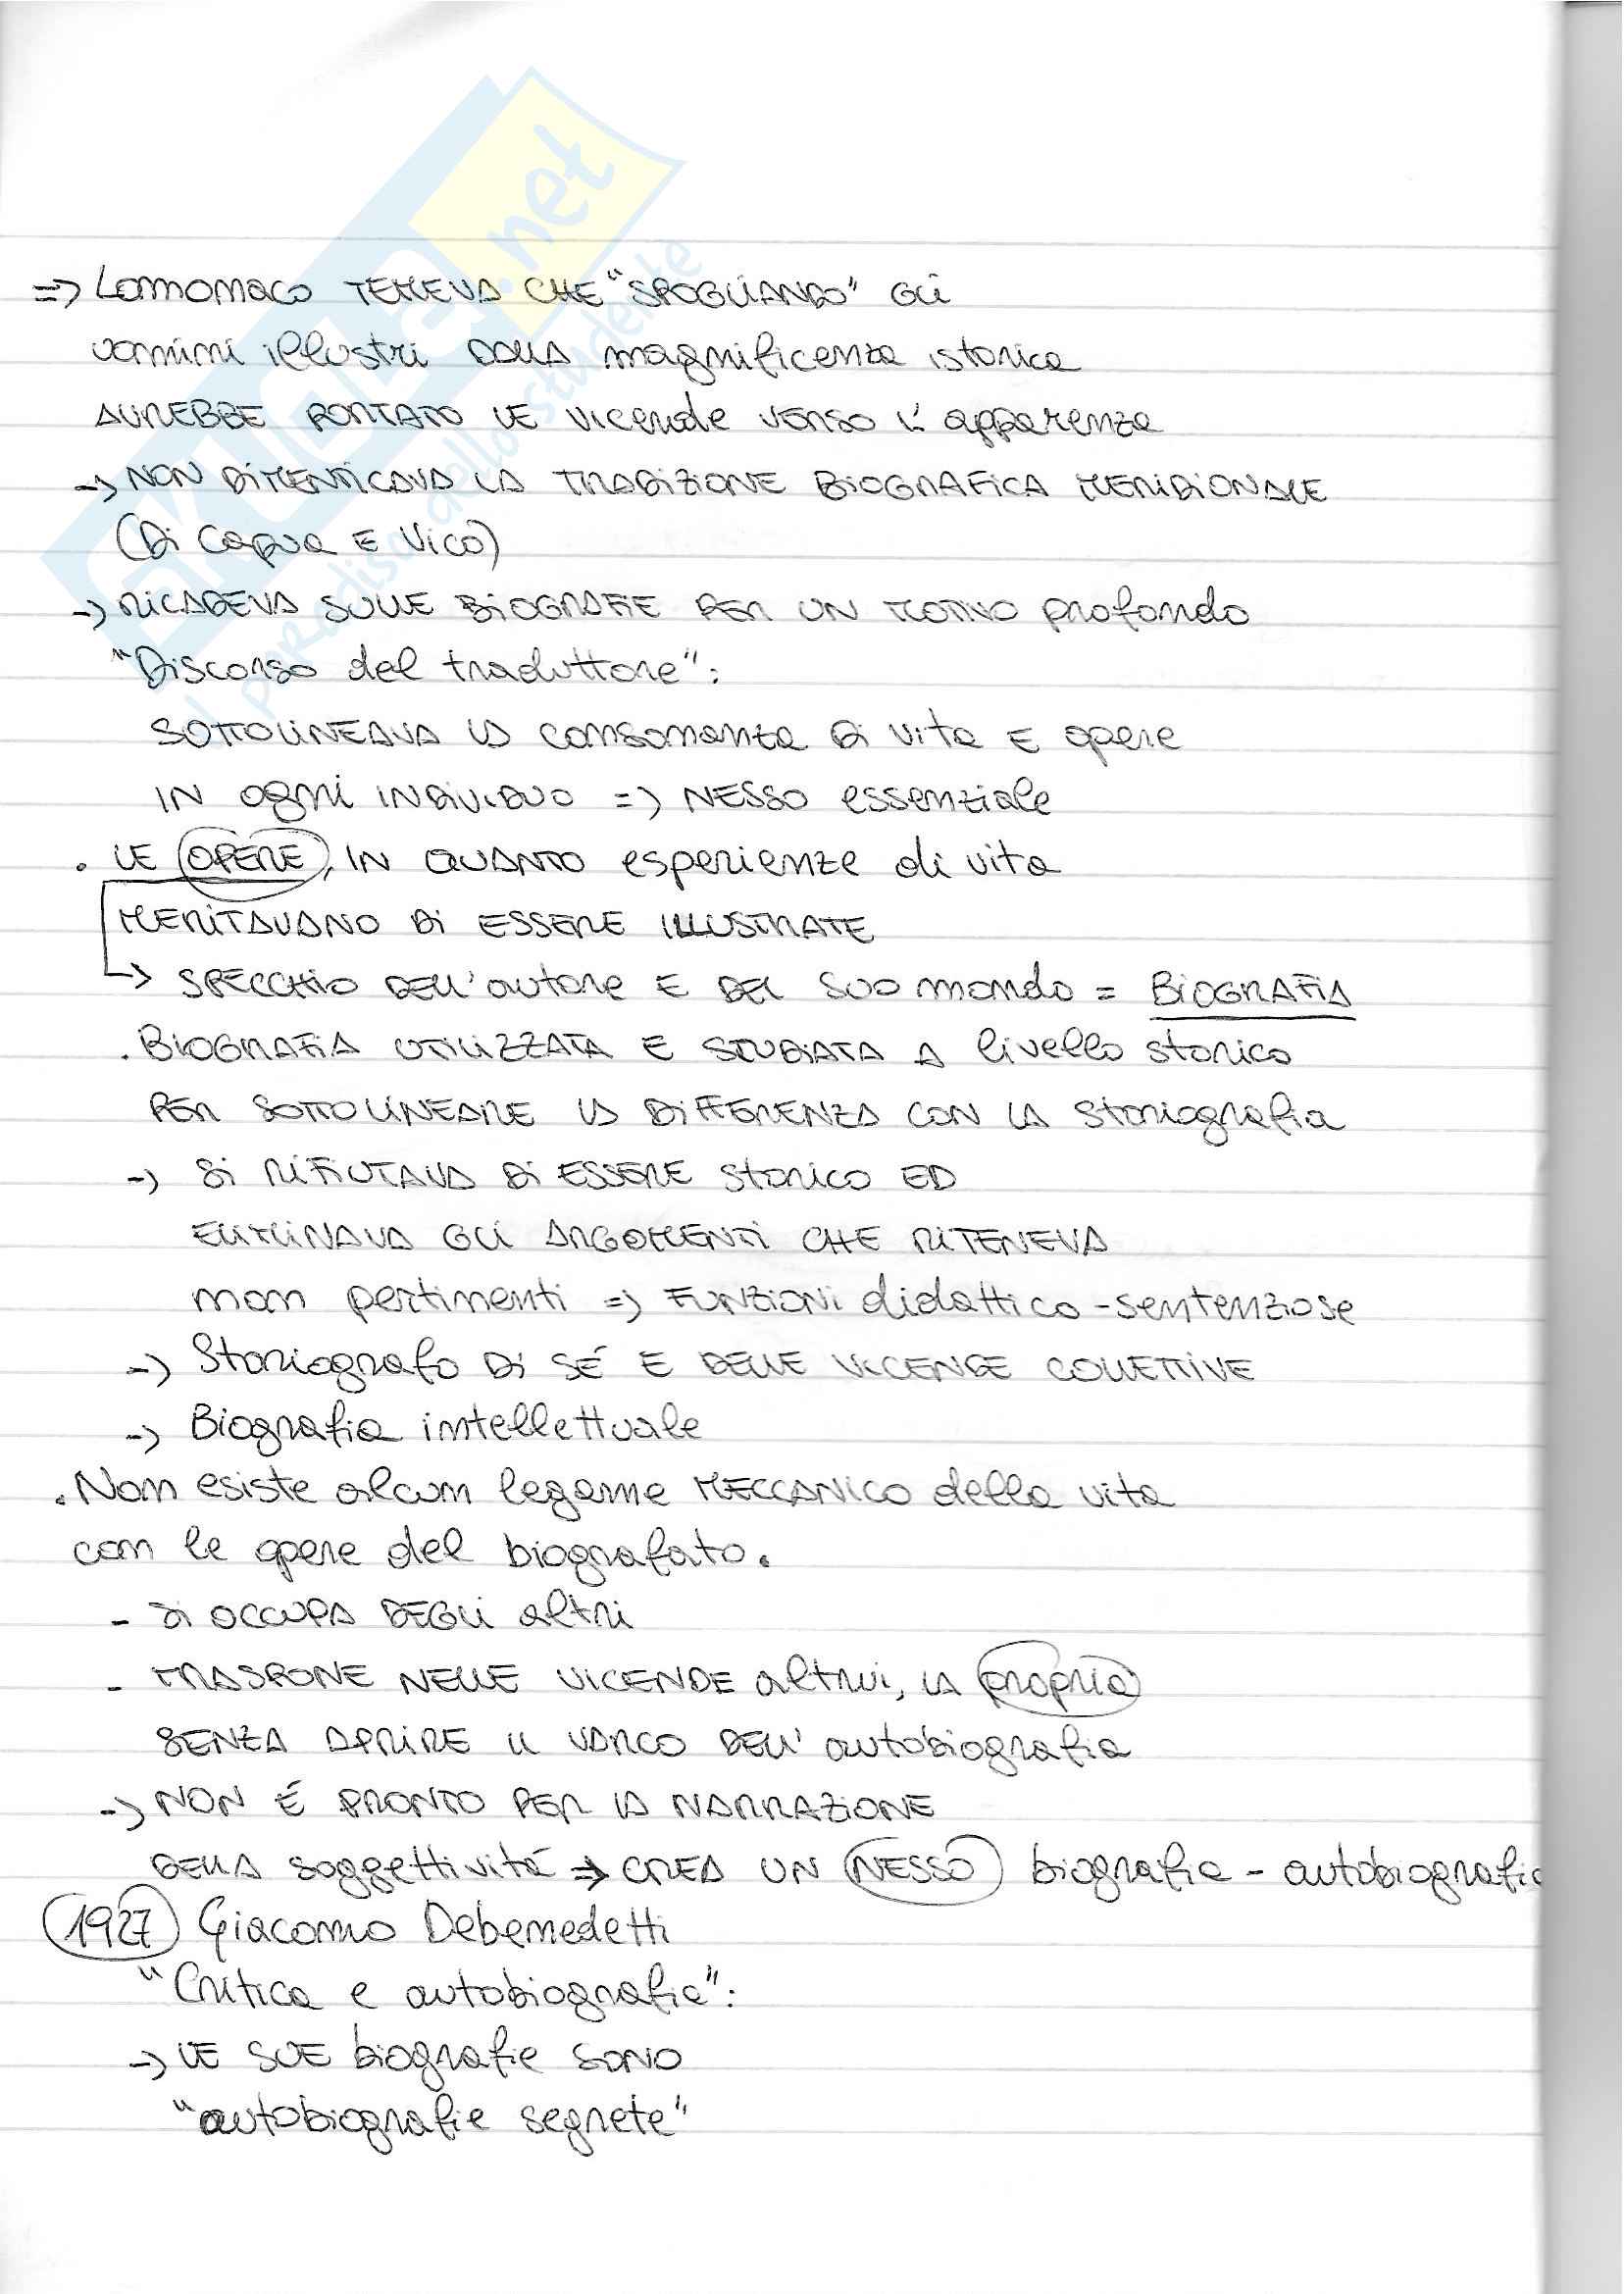 => Lomonaco TEMEVA CHE "SPOGLIANDO" GLI
uomini illustri DALLA magnificenza istorica
AVREBBE PORTATO LE vicende verso L'apparenza
-> NON DIMENTICAVA LA TRADIZIONE BIOGRAFICA MERIDIONALE
(Di Capua E Vico)
-> RICADEVA SULLE BIOGRAFIE PER UN MOTIVO profondo
"Discorso del traduttore":
SOTTOLINEAVA LA consonanza Di vita E opere
IN ogni INDIVIDUO => NESSO essenziale
. LE OPERE, IN QUANTO esperienze di vita
MERITAVANO Di ESSERE ILLUSTRATE
-> SPECCHIO DELL'autore E DEL SUO mondo = BIOGRAFIA
. BIOGRAFIA UTILIZZATA E STUDIATA A livello storico
PER SOTTOLINEARE LA DIFFERENZA CON LA storiografia
-> Si RIFIUTAVA Di ESSERE storico ED
ELIMINAVA GLI ARGOMENTI CHE RITENEVA
non pertinenti => FUNZIONI didattico-sentenziose
-> Storiografo Di SÉ E DELLE VICENDE COLLETTIVE
-> Biografia intellettuale
. Non esiste alcun legame MECCANICO della vita
con le opere del biografato.
- Si OCCUPA DEGLI altri
- TRASPONE NELLE VICENDE altrui, LA propria
SENZA APRIRE IL VARCO DELL'autobiografia
-> NON É PRONTO PER LA NARRAZIONE
DELLA soggettivitá => CREA UN NESSO biografia - autobiografia
1927 Giacomo Debenedetti
"Critica e autobiografia":
-> LE SUE biografie SONO
"autobiografie segrete"
SKUOLA.net
il paradiso dello studente